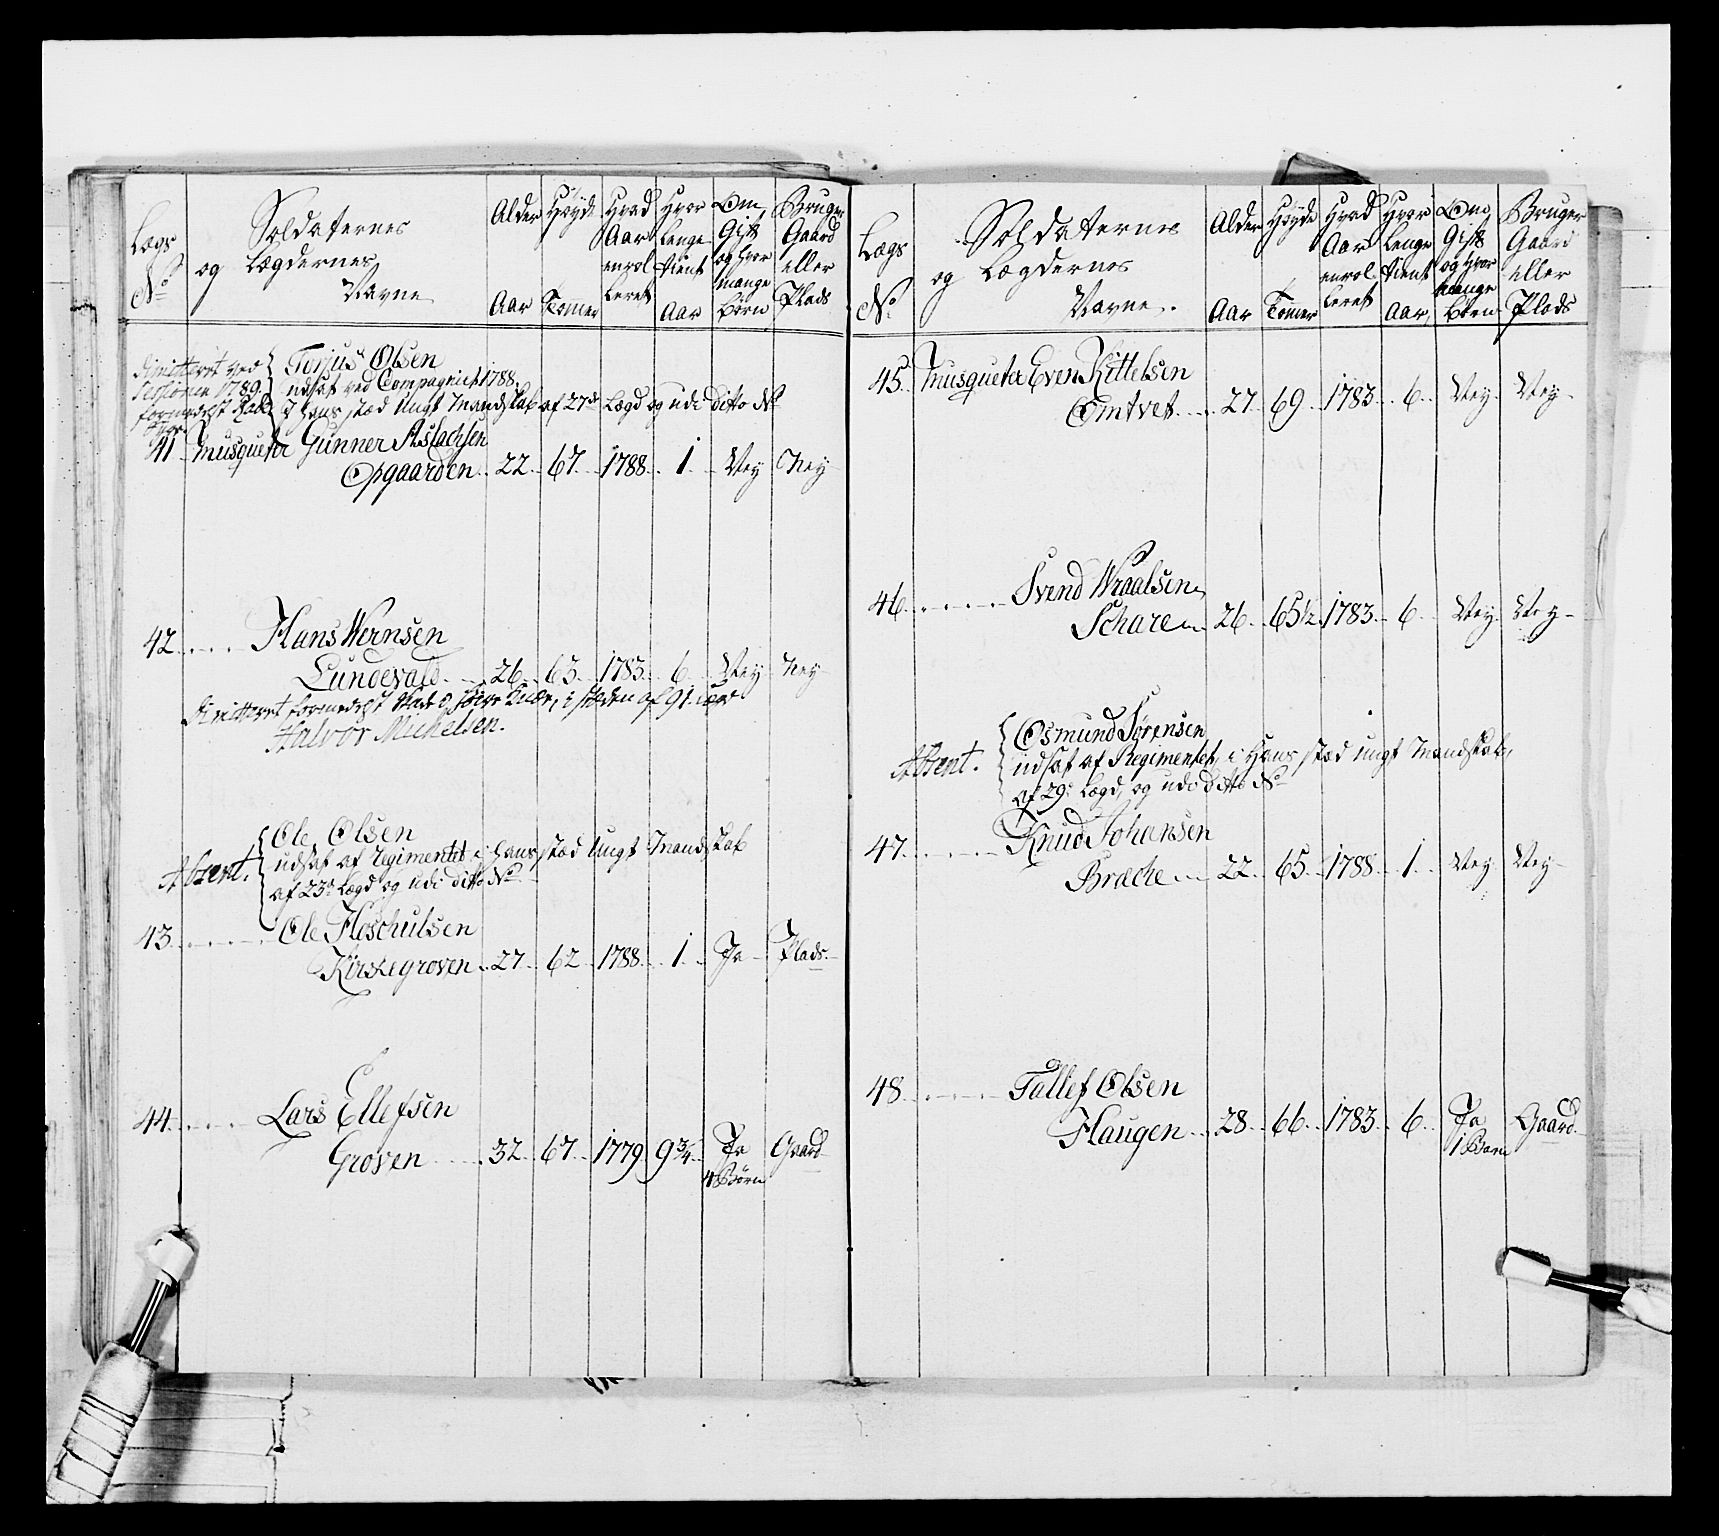 Lægs No
Soldaternes og Lægdernes Navne
Alder Aar
Høyde Tomer
Hvad Aar enrolleret
Hvor lenge tient Aar
Om Gift og hvor mange børn
Bruger Gaard eller Plads
qvitteret ved Sessionen 1789 formedelst
Torjus Olsen
udsat ved Compagniet 1788.
i Hans stæd Ungt Mandskab af 27de Lægd og udi ditto No
41 Musqueteer Gunner Aslachsen
Opgaarden 22 67 1788 1 Ney Ney
42 Hans Wernsen
Lundevald 26 63 1783 6 Ney Ney
qvitteret formedelst i stæden af 91
Halvor Michelsen.
Absent.
Ole Olsen
udsat af Regimentet i Hans stæd Ungt Mandskab
af 23de Lægd og udi ditto No
43 Ole Floschulsen
Kirkegroven 27 62 1788 1 Ja Plads
44 Lars Ellefsen
Groven 32 67 1779 9 3/4 Ja Gaard
4 Børn
Lægs No
Soldaternes og Lægdernes Navne.
Alder Aar
Høyde Tomer
Hvad Aar enrolleret
Hvor lenge tient Aar
Om Gift og hvor mange børn
Bruger Gaard eller Plads
45 Musqueteer Even Kittelsen
Omtvet 27 69 1783 6 Ney Ney
46 Svend Wraalsen
Schare 26 65 1/2 1783 6 Ney Ney
Absent.
Osmund Sørensen
udsat af Regimentet, i Hans stæd ungt Mandskab,
af 29de Lægd, og udi ditto No
47 Knud Johansen
Bræche 22 65 1788 1 Ney Ney
48 Tollef Olsen
Haugen 28 66 1783 6 Ja Gaard
1 Barn